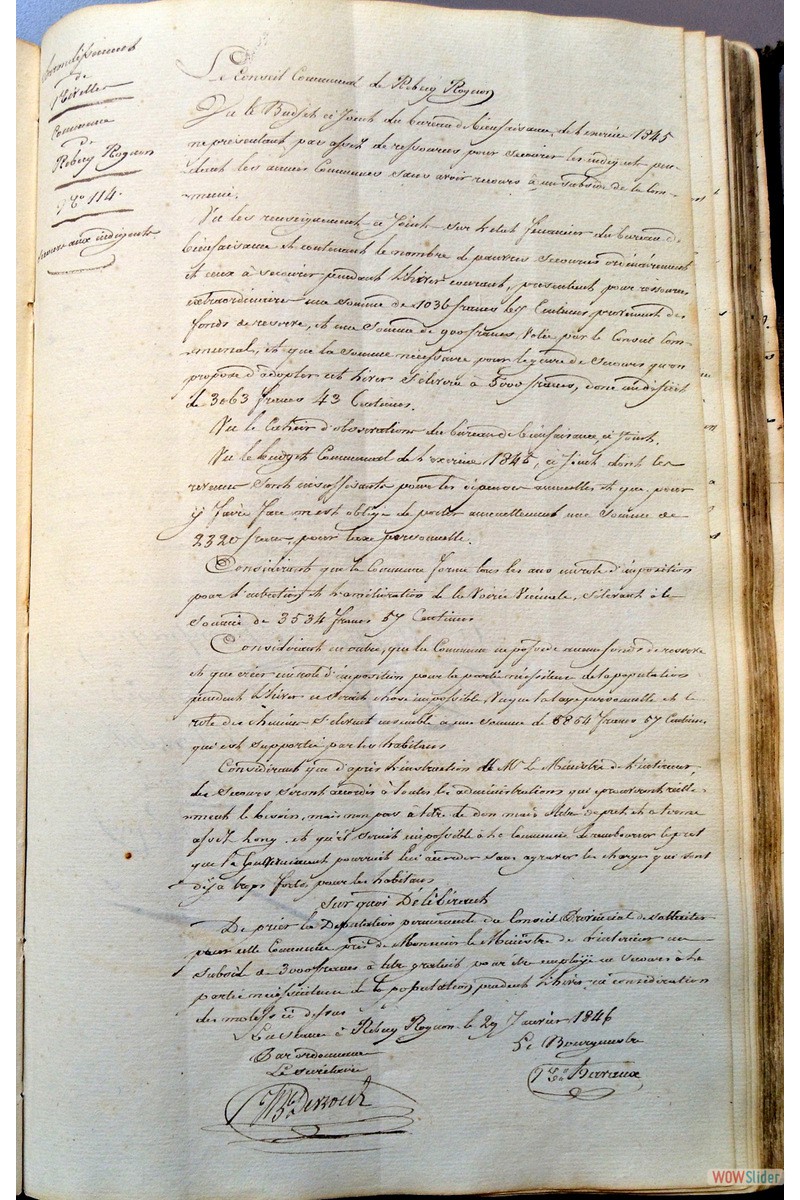 Arrondissement
de
Nivelles
Commune
de
Rebecq Rognon
N° 114
Secours aux indigents
Le Conseil Communal de Rebecq Rognon
Vu le Budget ci Joint du bureau de bienfaisance, de l'exercice 1845
ne présentant pas assez de ressources pour secourir les indigents pen-
dant les années Communes sans avoir recours à un subside de la Com-
mune.
Vu les renseignements ci Joint sur l'état financier du bureau de
bienfaisance et contenant le nombre de pauvres secourus ordinairement
et ceux à secourir pendant l'hiver courant, présentant pour ressources
extraordinaires une somme de 1036 francs 57 Centimes provenant des
fonds de reserve, et une Somme de 900 francs Votée par le Conseil Com-
munal, et que la somme nécessaire pour le genre de Secours qu'on
propose d'adopter cet hiver S'élevera à 5000 francs, donc un déficit
de 3063 francs 43 Centimes.
Vu le Cahier d'observations du bureau de bienfaisance, ci Joint.
Vu le budget Communal de l'exercice 1845, ci Joint dont les
revenus Sont insuffisants pour les dépenses annuelles et que pour
y faire face on est obligé de porter annuellement une Somme de
2320 francs, pour taxe personnelle.
Considérant que la Commune forme tous les ans un role d'imposition
pour l'entretien et l'amélioration de la Voirie Vicinale, S'élevant à la
Somme de 3534 francs 57 Centimes
Considérant en outre, que la Commune ne possede aucun fonds de reserve
et que créer un role d'imposition pour la partie nécessiteuse de la population
pendant l'hiver ce serait chose impossible Vu que la taxe personnelle et le
role des chemins S'élevent ensemble à une somme de 5854 francs 57 Centimes
qui est supportée par les habitans
Considérant que d'après l'instruction de Mr le Ministre de l'intérieur,
des Secours Seront accordés à toutes les administrations qui prouveront réelle-
ment le besoin, mais non pas à titre de don mais titre de pret et à terme
assez long, et qu'il serait impossible à la Commune de rembourser le pret
que le Gouvernement pourrait lui accorder sans agraver les charges qui sont
déjà trop fortes pour les habitans
Sur quoi Délibérant
De prier la Députation permanente du Conseil Provincial de solliciter
pour cette Commune près de Monsieur le Ministre de l'intérieur un
subside de 3000 francs à titre gratuit pour être employé en secours à la
partie nécessiteuse de la population, pendant l'hiver en considération
des motifs ci dessus
En séance à Rebecq Rognon le 29 Janvier 1846
Par ordonnance
Le Secrétaire
Le Bourgmestre
WOWSlider